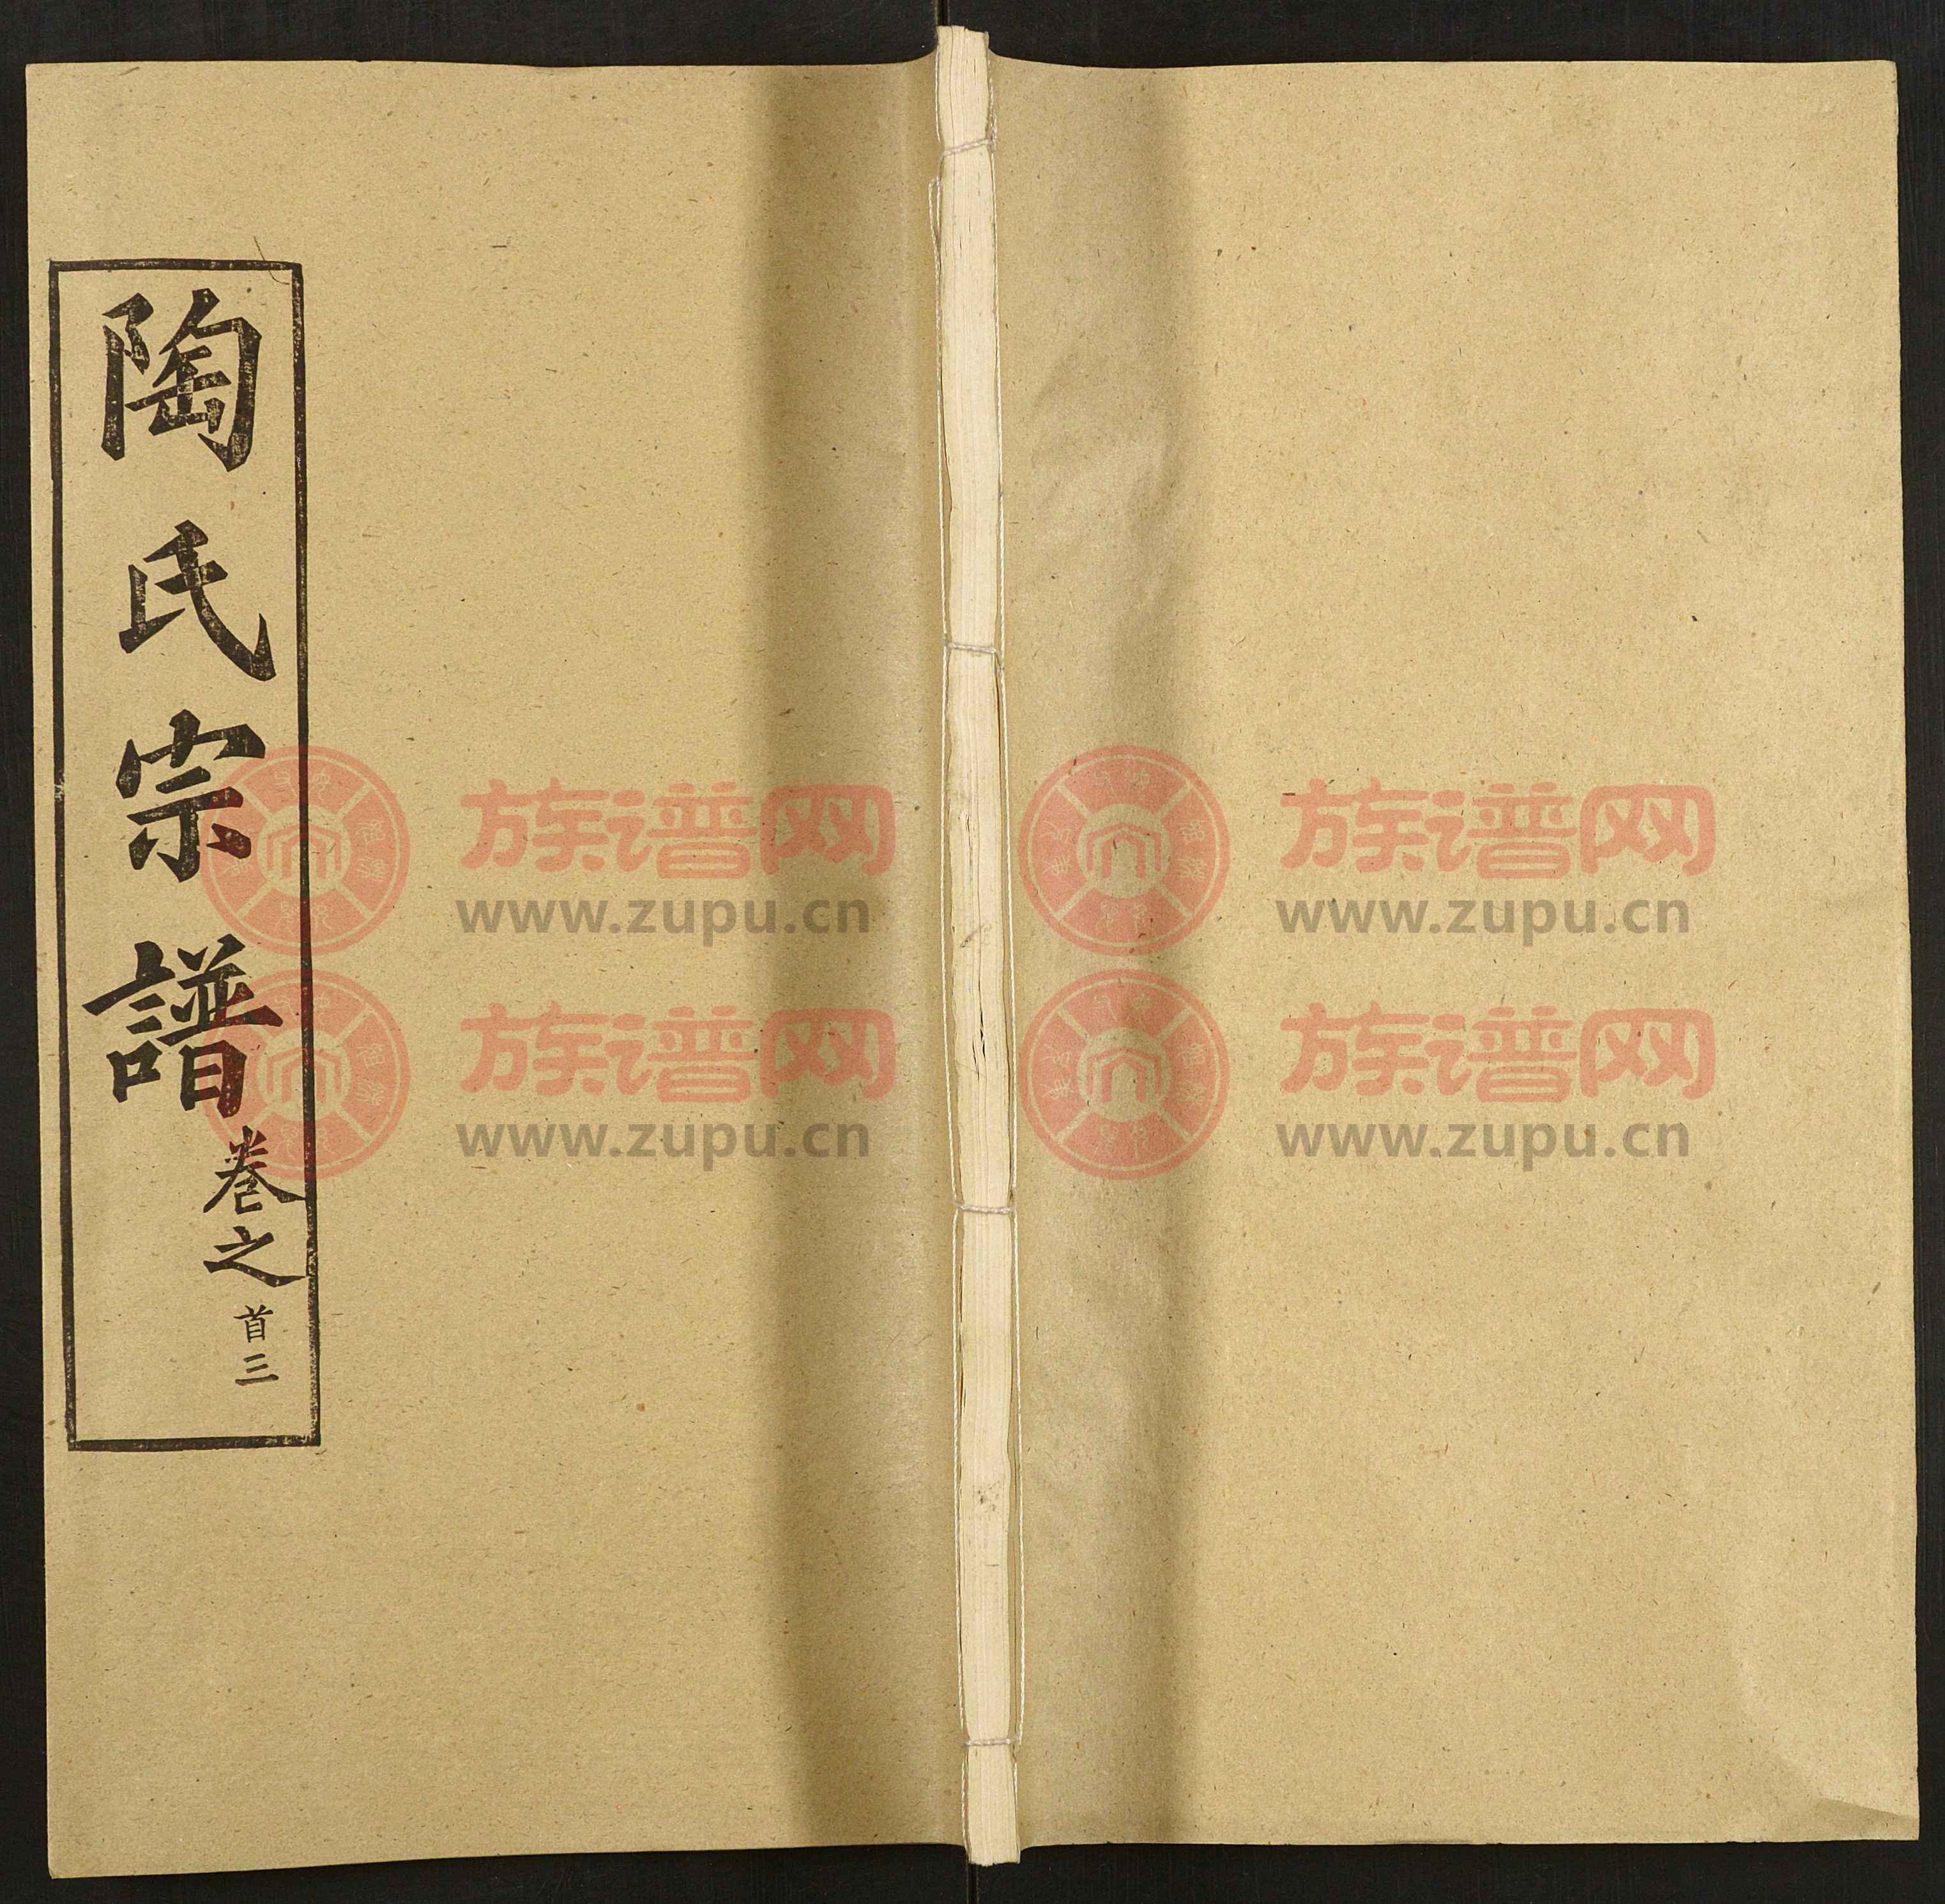 陶氏宗譜
卷之
首三
族谱网
www.zupu.cn
族谱网
www.zupu.cn
族谱网
www.zupu.cn
族谱网
www.zupu.cn